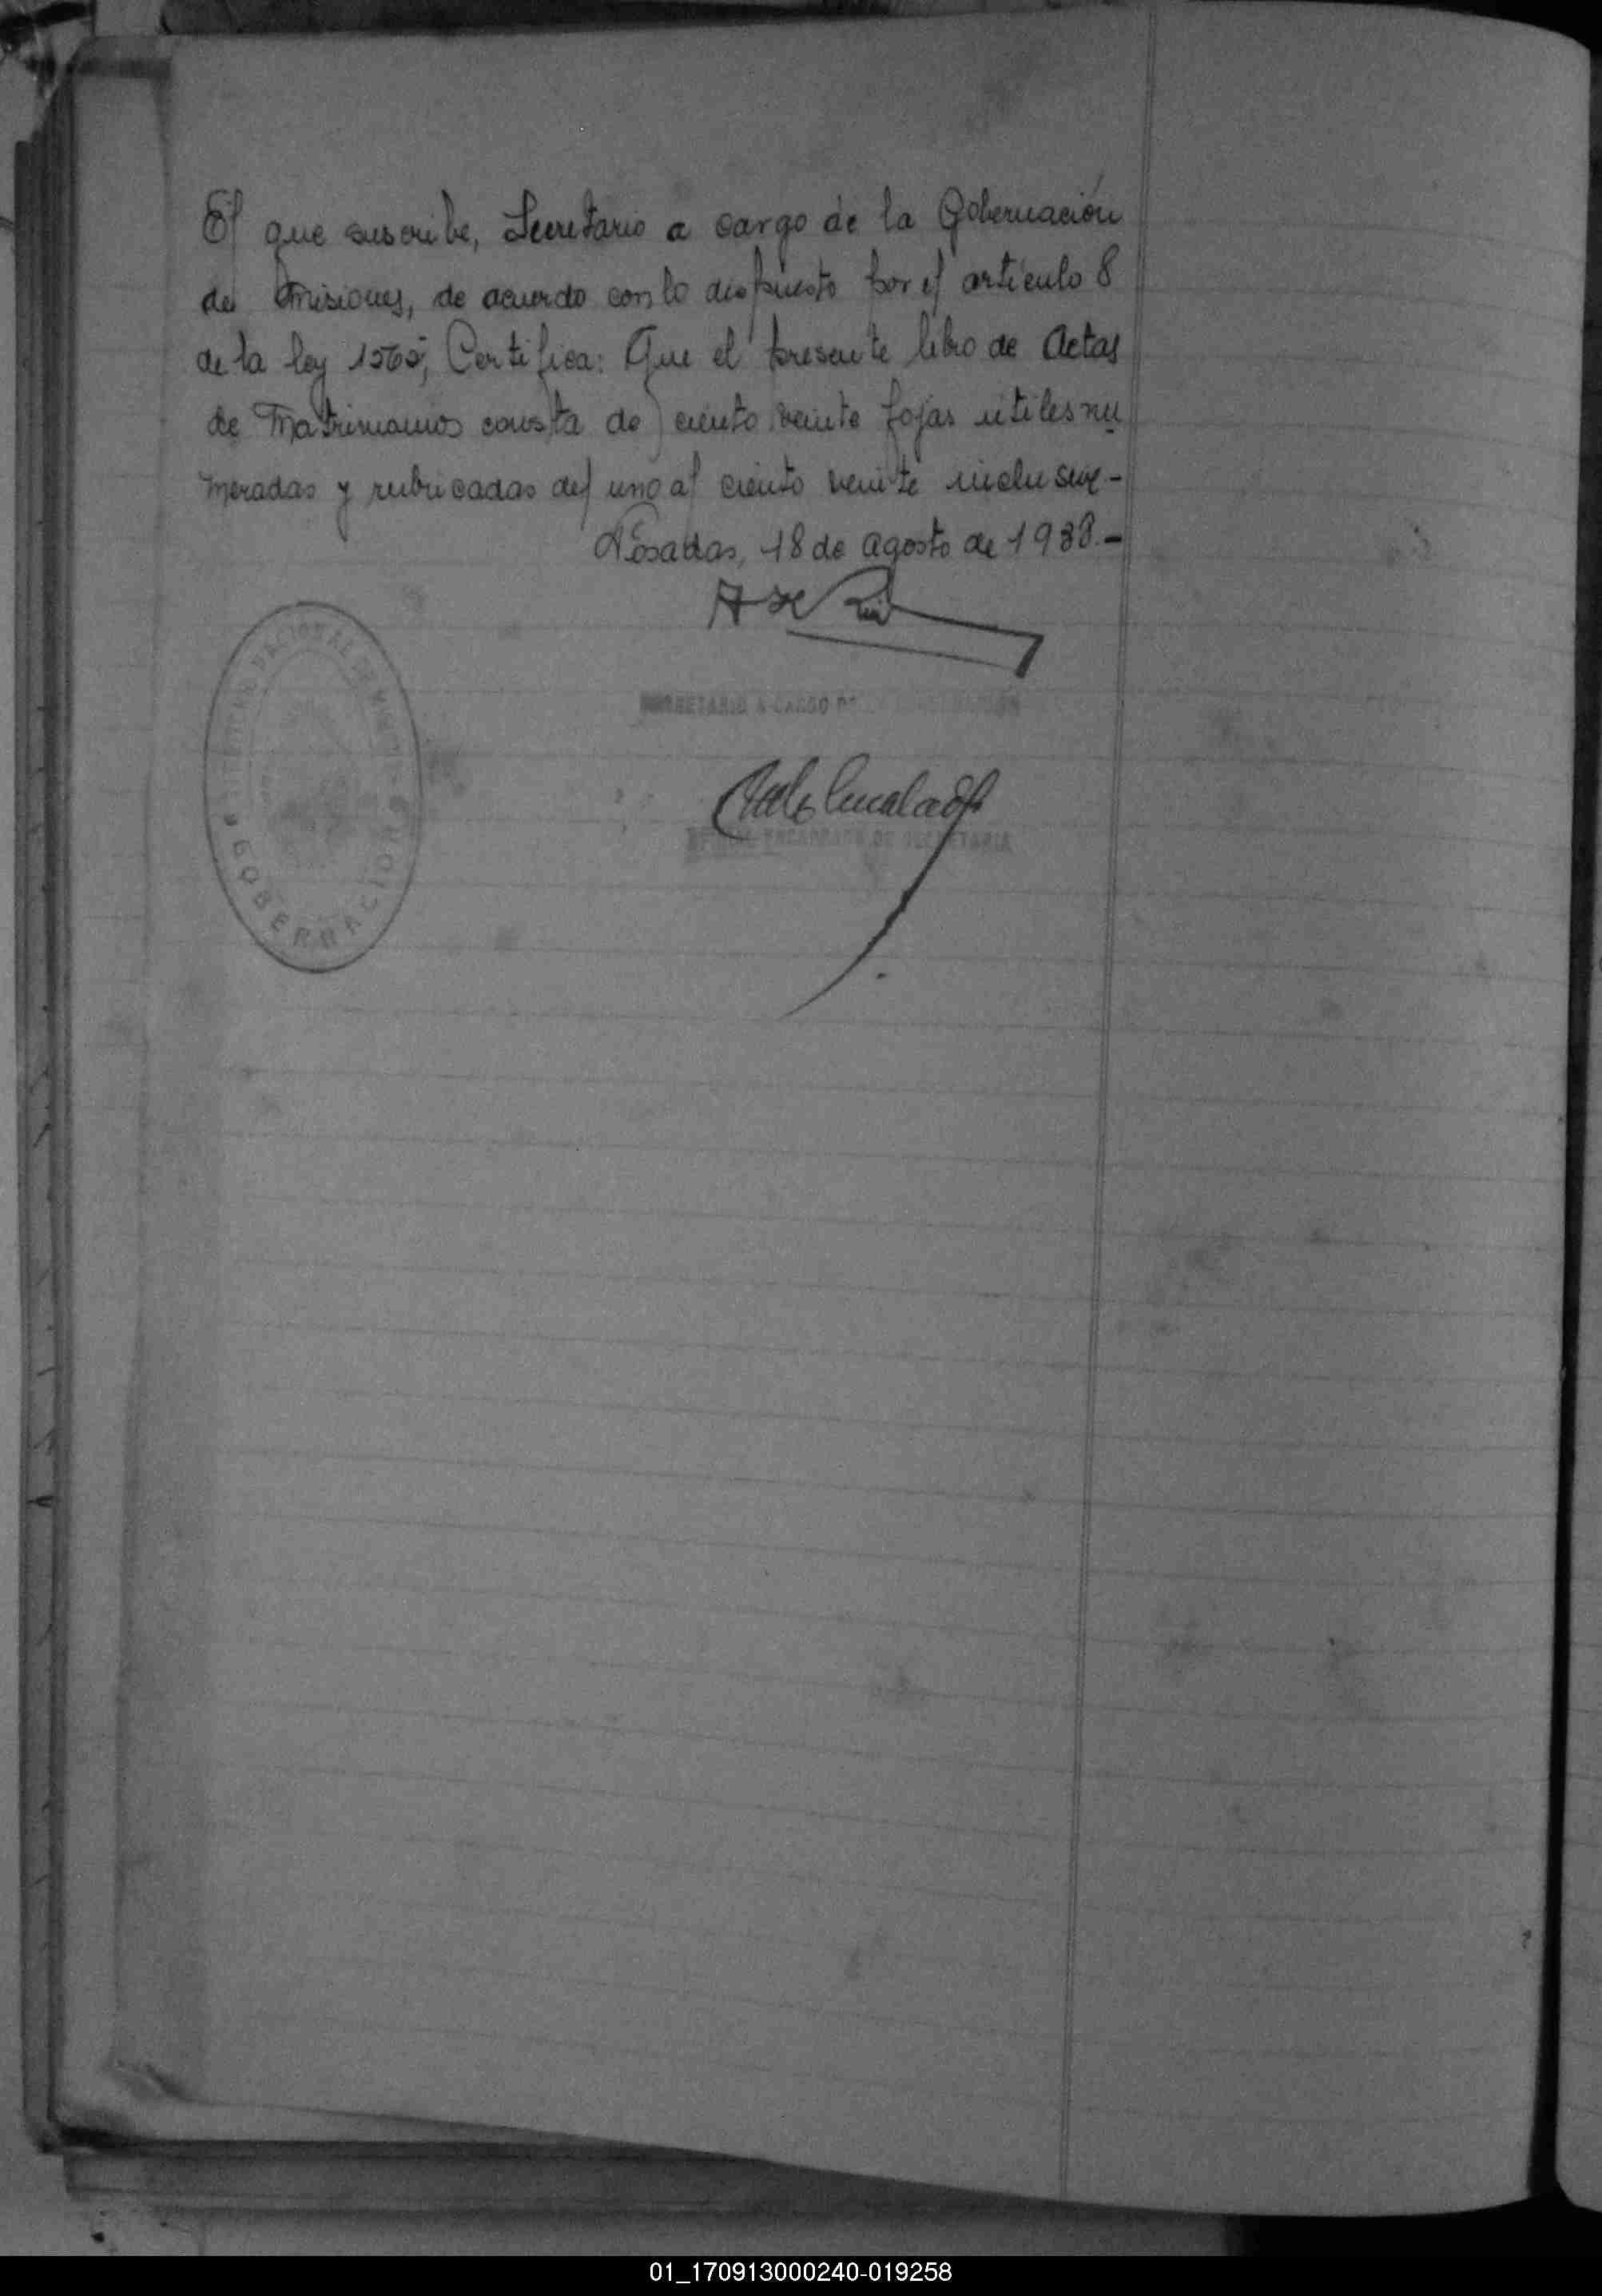 El que suscribe, Secretario a cargo de la Gobernación
de Misiones, de acuerdo con lo dispuesto por el artículo 8
de la ley 1565, Certifica: Que el presente libro de Actas
de Matrimonios consta de ciento veinte fojas utiles nu
meradas y rubricadas del uno al ciento veinte inclusive-
Posadas, 18 de agosto de 1938.-
SECRETARIO A CARGO DE
ENCARGADO DE SECRETARIA
NACIONAL DE
GOBERNACION
01_170913000240-019258